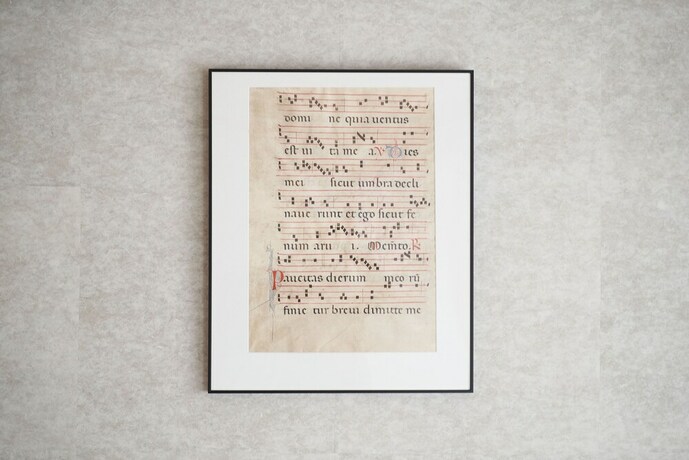 domi ne quia ventus
est vi ta me a. V. Dies
mei sicut umbra decli
nave runt et ego sicut fe
num aru i. Memto. R.
Paucitas dierum meo rū
finie tur brevi dimitte me